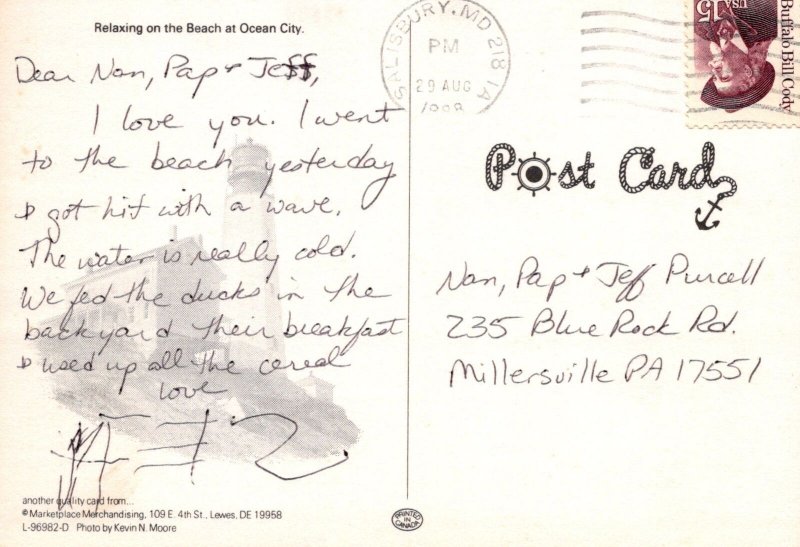 Relaxing on the Beach at Ocean City.
Dear Nan, Pap + Jeff,
I love you. I went
to the beach yesterday
& got hit with a wave.
The water is really cold.
We fed the ducks in the
backyard their breakfast
& used up all the cereal
Love
another quality card from...
© Marketplace Merchandising, 109 E. 4th St., Lewes, DE 19958
L-96982-D Photo by Kevin N. Moore
PRINTED IN CANADA
SALISBURY, MD 218 1A
PM
29 AUG
USA 15
Buffalo Bill Cody
Post Card
Nan, Pap + Jeff Purcell
235 Blue Rock Rd.
Millersville PA 17551